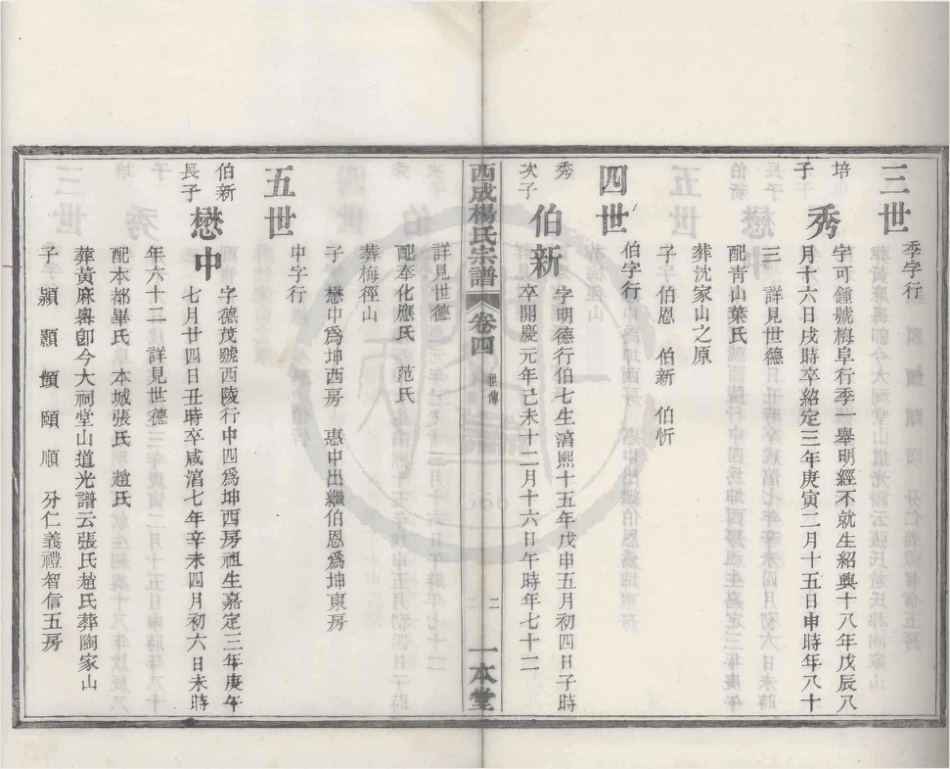 三世
季字行
培
子
秀
字可鍾號梅阜行季一舉明經不就生紹興十八年戊辰八
月十六日戌時卒紹定三年庚寅二月十五日申時年八十
三 詳見世德
配青山葉氏
葬沈家山之原
子 伯恩 伯新 伯忻
四世
伯字行
秀
次子
伯新
字明德行伯七生湻熙十五年戊申五月初四日子時
卒開慶元年己未十二月十六日午時年七十二
西成楊氏宗譜
卷四
世傳
二
一本堂
詳見世德
配奉化應氏 范氏
葬梅徑山
子 懋中爲坤西房 惠中出繼伯恩爲坤東房
五世
中字行
伯新
長子
懋中
字德茂號西陵行中四爲坤西房祖生嘉定三年庚午
七月廿四日丑時卒咸湻七年辛未四月初六日未時
年六十二 詳見世德
配本都畢氏 本城張氏 趙氏
葬黃麻嶴卽今大祠堂山道光譜云張氏趙氏葬陶家山
子 潁 顒 顗 頤 順 分仁義禮智信五房